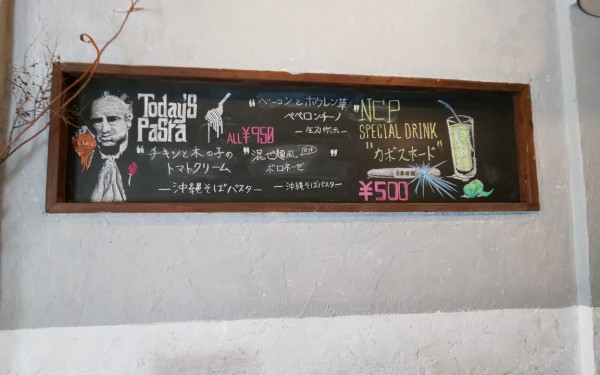 Today's
Pasta
ALL ¥950
"チキンと木の子の
トマトクリーム
—沖縄そばパスタ—
"ベーコンとホウレン草"
ペペロンチーノ
"混ぜ麺風
ボロネーゼ
—沖縄そばパスタ—
NEP
SPECIAL DRINK
"カボスネード"
¥500